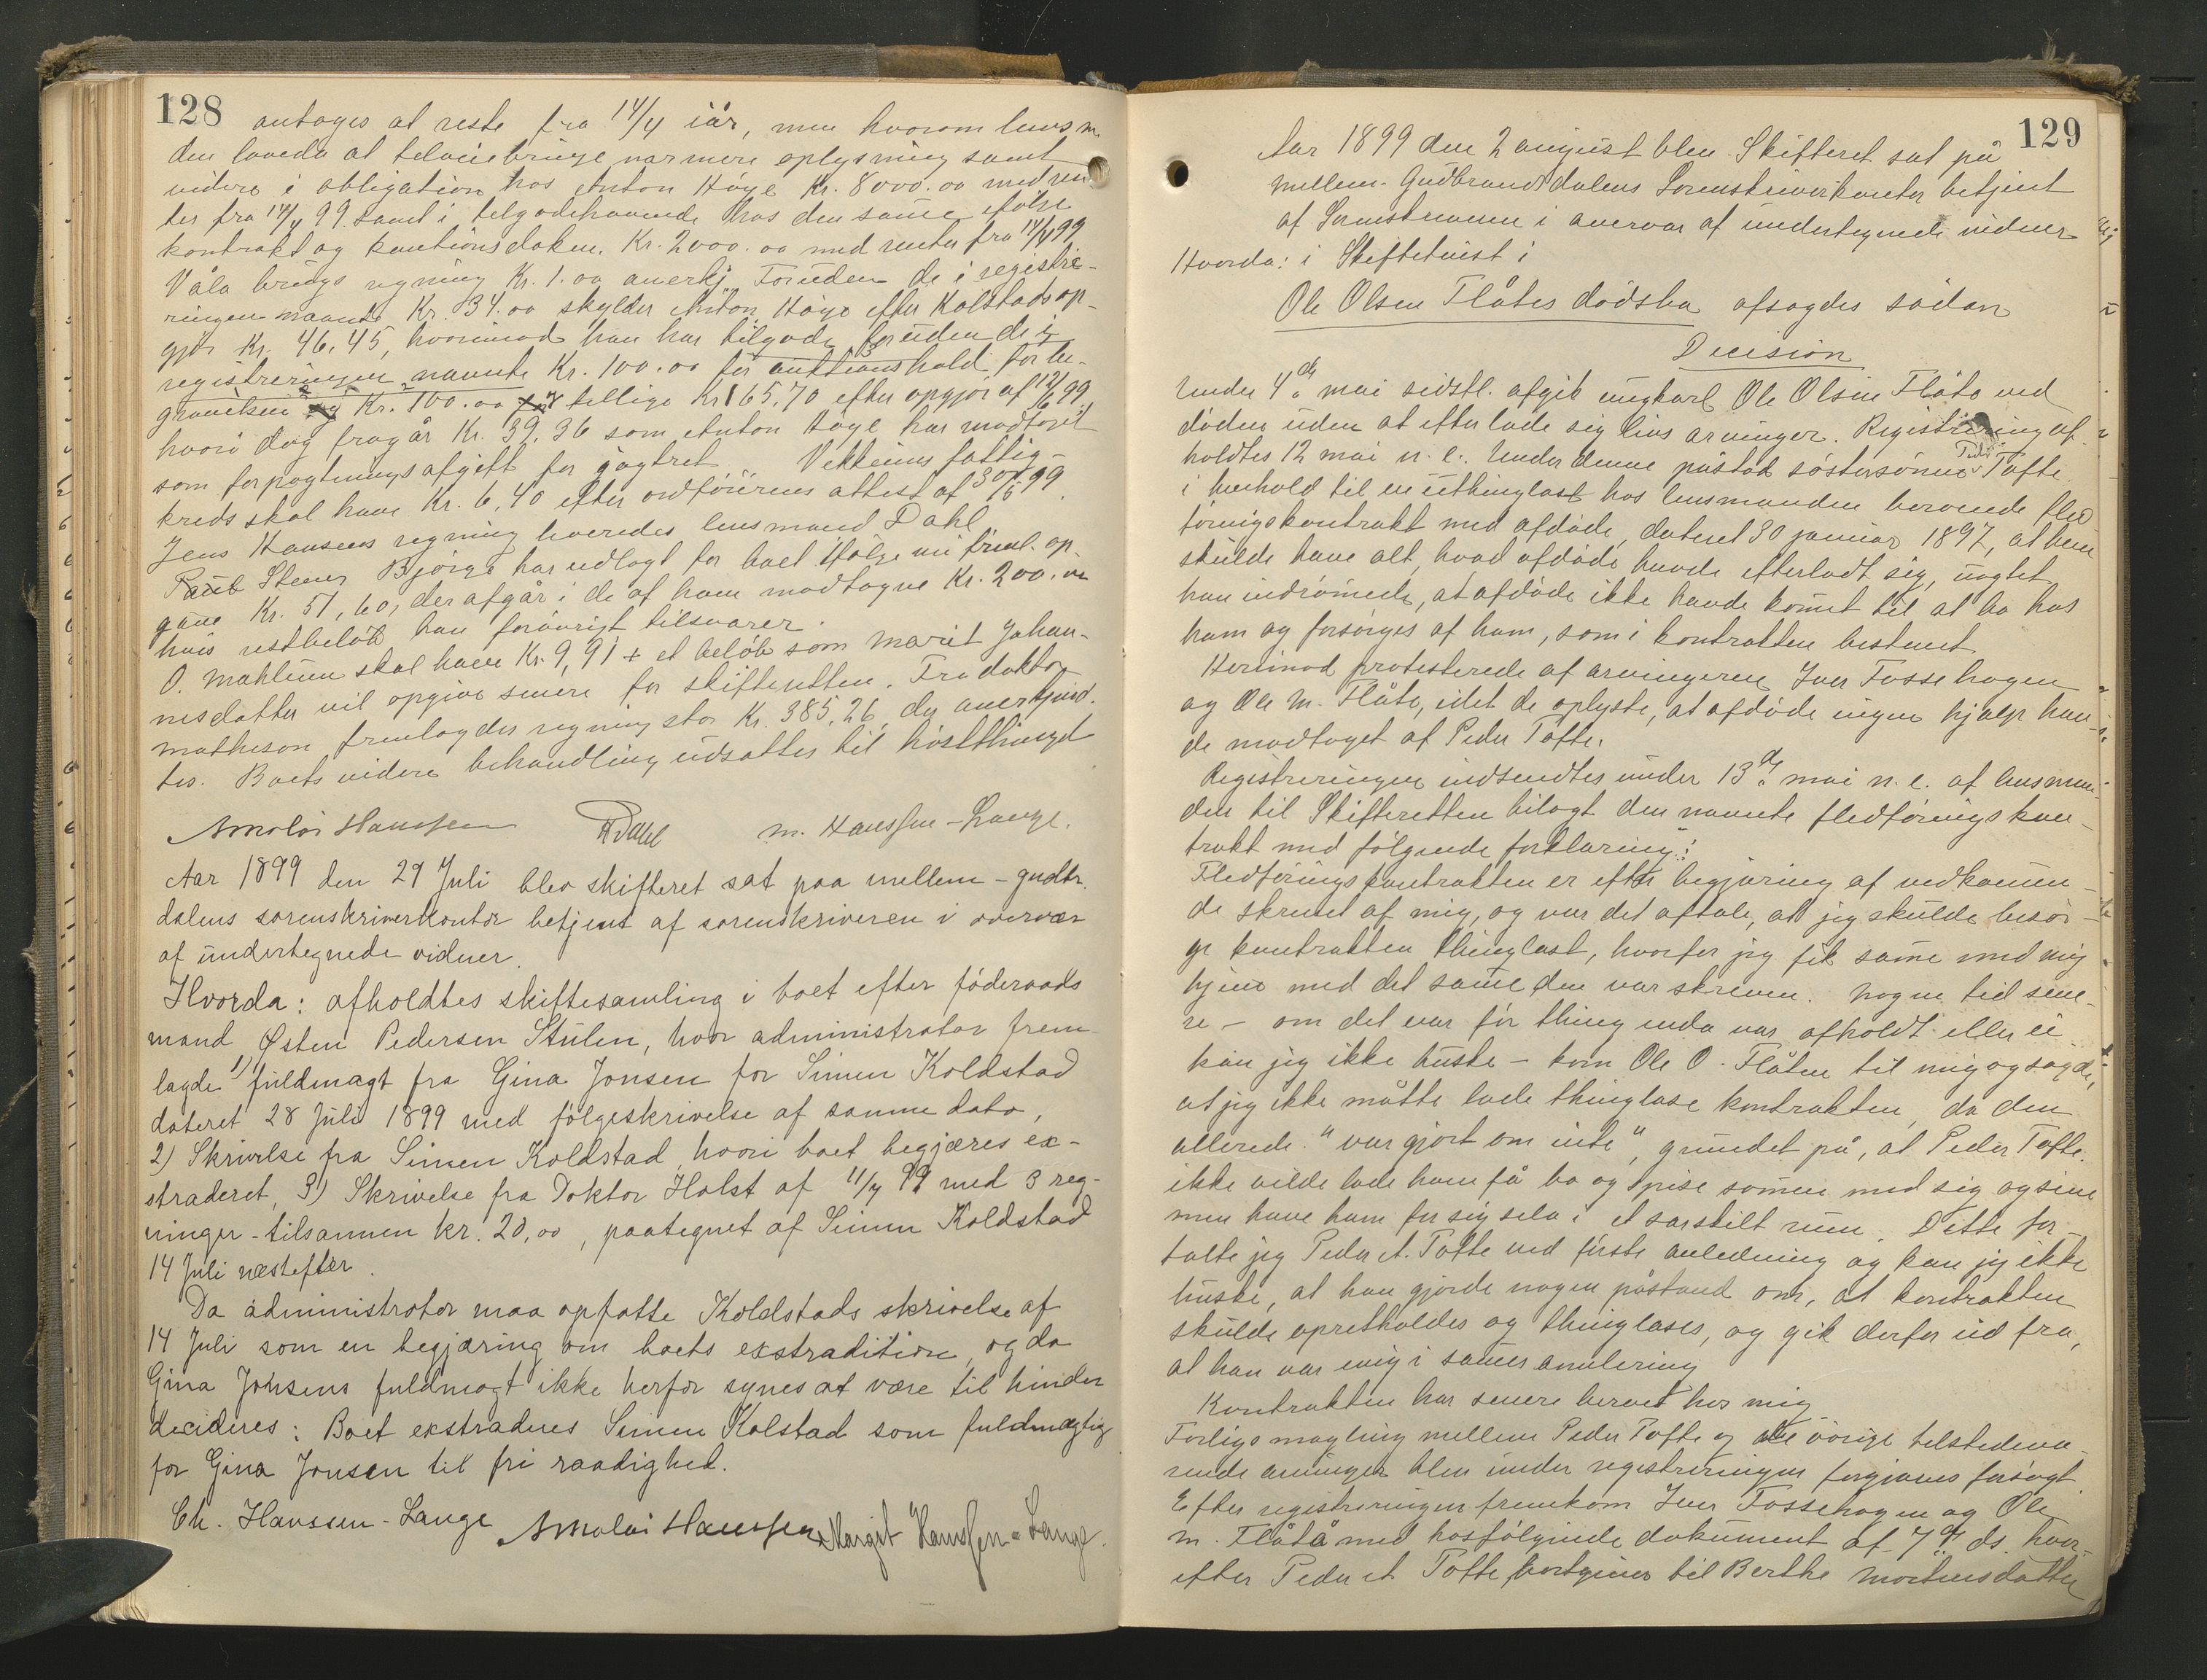 128 antages at reste fra 14/4 iår, men hvorom lensm.
den lovede at tilveiebringe nærmere oplysning samt
videre i obligation hos Anton Höye Kr. 8000.00 med ren
ter fra 14/4 99 samt i tilgodehavende hos den same ifölge
kontrakt og kautionsdokum. Kr. 2000.00 med renter fra 14/4 99
Våla brugs regning Kr. 1.00 anerkj. Foruden de i registre-
ringen nævnte Kr. 34.00 skylder Anton Höye efter Kolstads op-
gjör Kr. 46,45, hvorimod han har tilgode foruden de i
registreringen nævnte Kr. 100.00 for auktionshold for be-
gravelsen Kr. 100.00 tillige Kr 165.70 efter opgjör af 12/6 99
hvori dog fragår Kr. 39.36 som Anton Höye har modtaget
som forpagtningsafgift for jagtret. Vekkeims fattig-
kreds skal have Kr. 6,40 efter ordförerens attest af 30/6 99.
Jens Hansens regning hævedes lensmand Dahl
Paul Steens Bjørge har udlagt for boet ifölge nu freml. op-
gave Kr. 51,60, der afgår i de af ham modtagne Kr. 200.00
hvis restbeløb han forövrigt tilsvarer.
O. Mæhlum skal have Kr. 9,91 + et beløb som Marit Johan-
nesdatter vil opgive senere for skifteretten. Fra doktor
Matheson fremlagdes regning stor Kr. 385,26, der anerkjend-
tes. Boets videre behandling udsattes til höstthinget
Amalai Hanssen RDahl M. Hanssen-Lange.
Aar 1899 den 29 Juli blev skifteret sat paa mellem-gudbr.
dalens sorenskriverkontor betjent af sorenskriveren i overvær
af undertegnede vidner.
Hvorda: afholdtes skiftesamling i boet efter föderaads
mand Østen Pedersen Stulen, hvor administrator frem-
lagde 1) fuldmagt fra Gina Jonsen for Simen Koldstad
dateret 28 Juli 1899 med fölgeskrivelse af samme dato,
2) Skrivelse fra Simen Koldstad, hvori boet begjæres ex-
straderet, 3) Skrivelse fra Doktor Holst af 11/7 99 med 3 reg-
ninger - tilsammen kr. 20,00, paategnet af Simen Koldstad
14 Juli næstefter.
Da administrator maa opfatte Koldstads skrivelse af
14 Juli som en begjæring om boets exstradition, og da
Gina Johsens fuldmagt ikke herfor synes at være til hinder
decideres: Boet exstraderes Simen Kolstad som fuldmægtig
for Gina Jonsen til fri raadighed.
Ch. Hanssen-Lange Amalai Hanssen Margit Hanssen-Lange.
129
Aar 1899 den 2 august blev Skifteret sat på
Mellem-Gudbrandsdalens Sorenskriverkontor betjent
af Sorenskriveren i overvær af undertegnede vidner
Hvorda: i Skiftetvist i
Ole Olsen Flåtes dödsbo afsagdes sådan
Decision
Under 4de mai sidstl. afgik ungkarl Ole Olsen Flåte ved
döden uden at efterlade sig livs arvinger. Registrering af-
holdtes 12 mai n. e. Under denne påstod söstersönnen Peder Tofte
i henhold til en uthinglæst hos lensmanden beroende fled-
föringskontrakt med afdöde, dateret 30 januar 1897, at han
skulde have alt, hvad afdöde havde efterladt sig, uagtet
han indrömmede, at afdöde ikke havde kommet til at bo hos
ham og forsörges af ham, som i kontrakten bestemt
Herimod protesterede af arvingerne Iver Fossehagen
og Ole M. Flåte, idet de oplyste, at afdöde ingen hjælp hav-
de modtaget af Peder Tofte.
Registreringen indsendtes under 13de mai n. e. af lensman-
den til Skifteretten bilagt den nævnte fledföringskon-
trakt med fölgende forklaring:
Fledföringskontrakten er efter begjæring af vedkommen-
de skrevet af mig, og var det aftale, at jeg skulde besör-
ge kontrakten thinglæst, hvorfor jeg fik same med mig
hjem med det same den var skreven. Nogen tid sene-
re - om det var för thing enda var afholdt eller ei
kan jeg ikke huske - kom Ole O. Flåten til mig og sagde,
at jeg ikke måtte lade thinglæse kontrakten, da den
allerede "var gjort om inte", grundet på, at Peder Tofte
ikke vilde lade ham få bo og spise sammen med sig og sine
men have ham for sig selv i et særskilt rum. Dette for-
talte jeg Peder A. Tofte ved förste anledning og kan jeg ikke
huske, at han gjorde nogen påstand om, at kontrakten
skulde opretholdes og thinglæses, og gik derfor ud fra,
at han var enig i sammes anulering
Kontrakten har senere beroet hos mig
Forligsmægling mellem Peder Tofte og de övrige tilstedevæ-
rende arvinger blev under registreringen forgjæves forsögt
Efter registreringen fremkom Iver Fossehagen og Ole
M. Flåtå med hosfölgende dokument af 7de ds. hvor-
efter Peder A. Tofte bortgiver til Berthe Mortensdatter